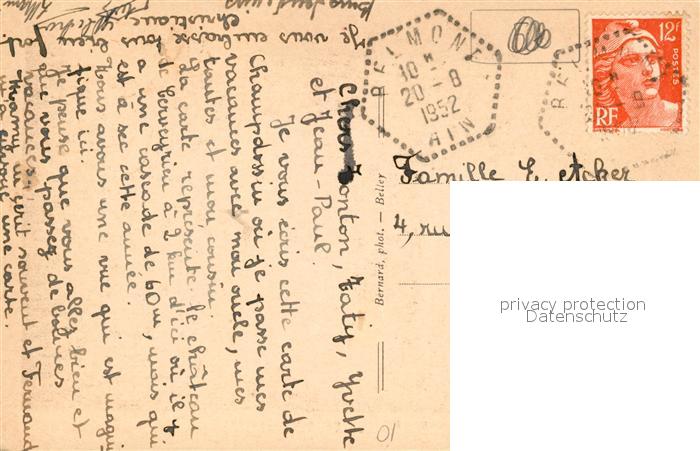 Chers Tonton, Taty, Yvette
et Jean-Paul.
Je vous écris cette carte de
Champdossin où je passe mes
vacances avec mon oncle, mes
tantes et mon cousin.
La carte représente le château
de à 2 km d'ici où il y
a une cascade de 60m, mais qui
est à sec cette année.
Nous avons une vue qui est magni
fique ici.
Je pense que vous allez bien et
que vous passez de bonnes
vacances.
m'écrit souvent et Fernand
m'a envoyé une carte.
Je vous embrasse tous bien fort.
Christiane
BELMONT
10 H
20 - 8
1952
AIN
12F
POSTES
RF
Famille E. etcher
4, ru
Bernard, phot. — Belley
01
privacy protection
Datenschutz